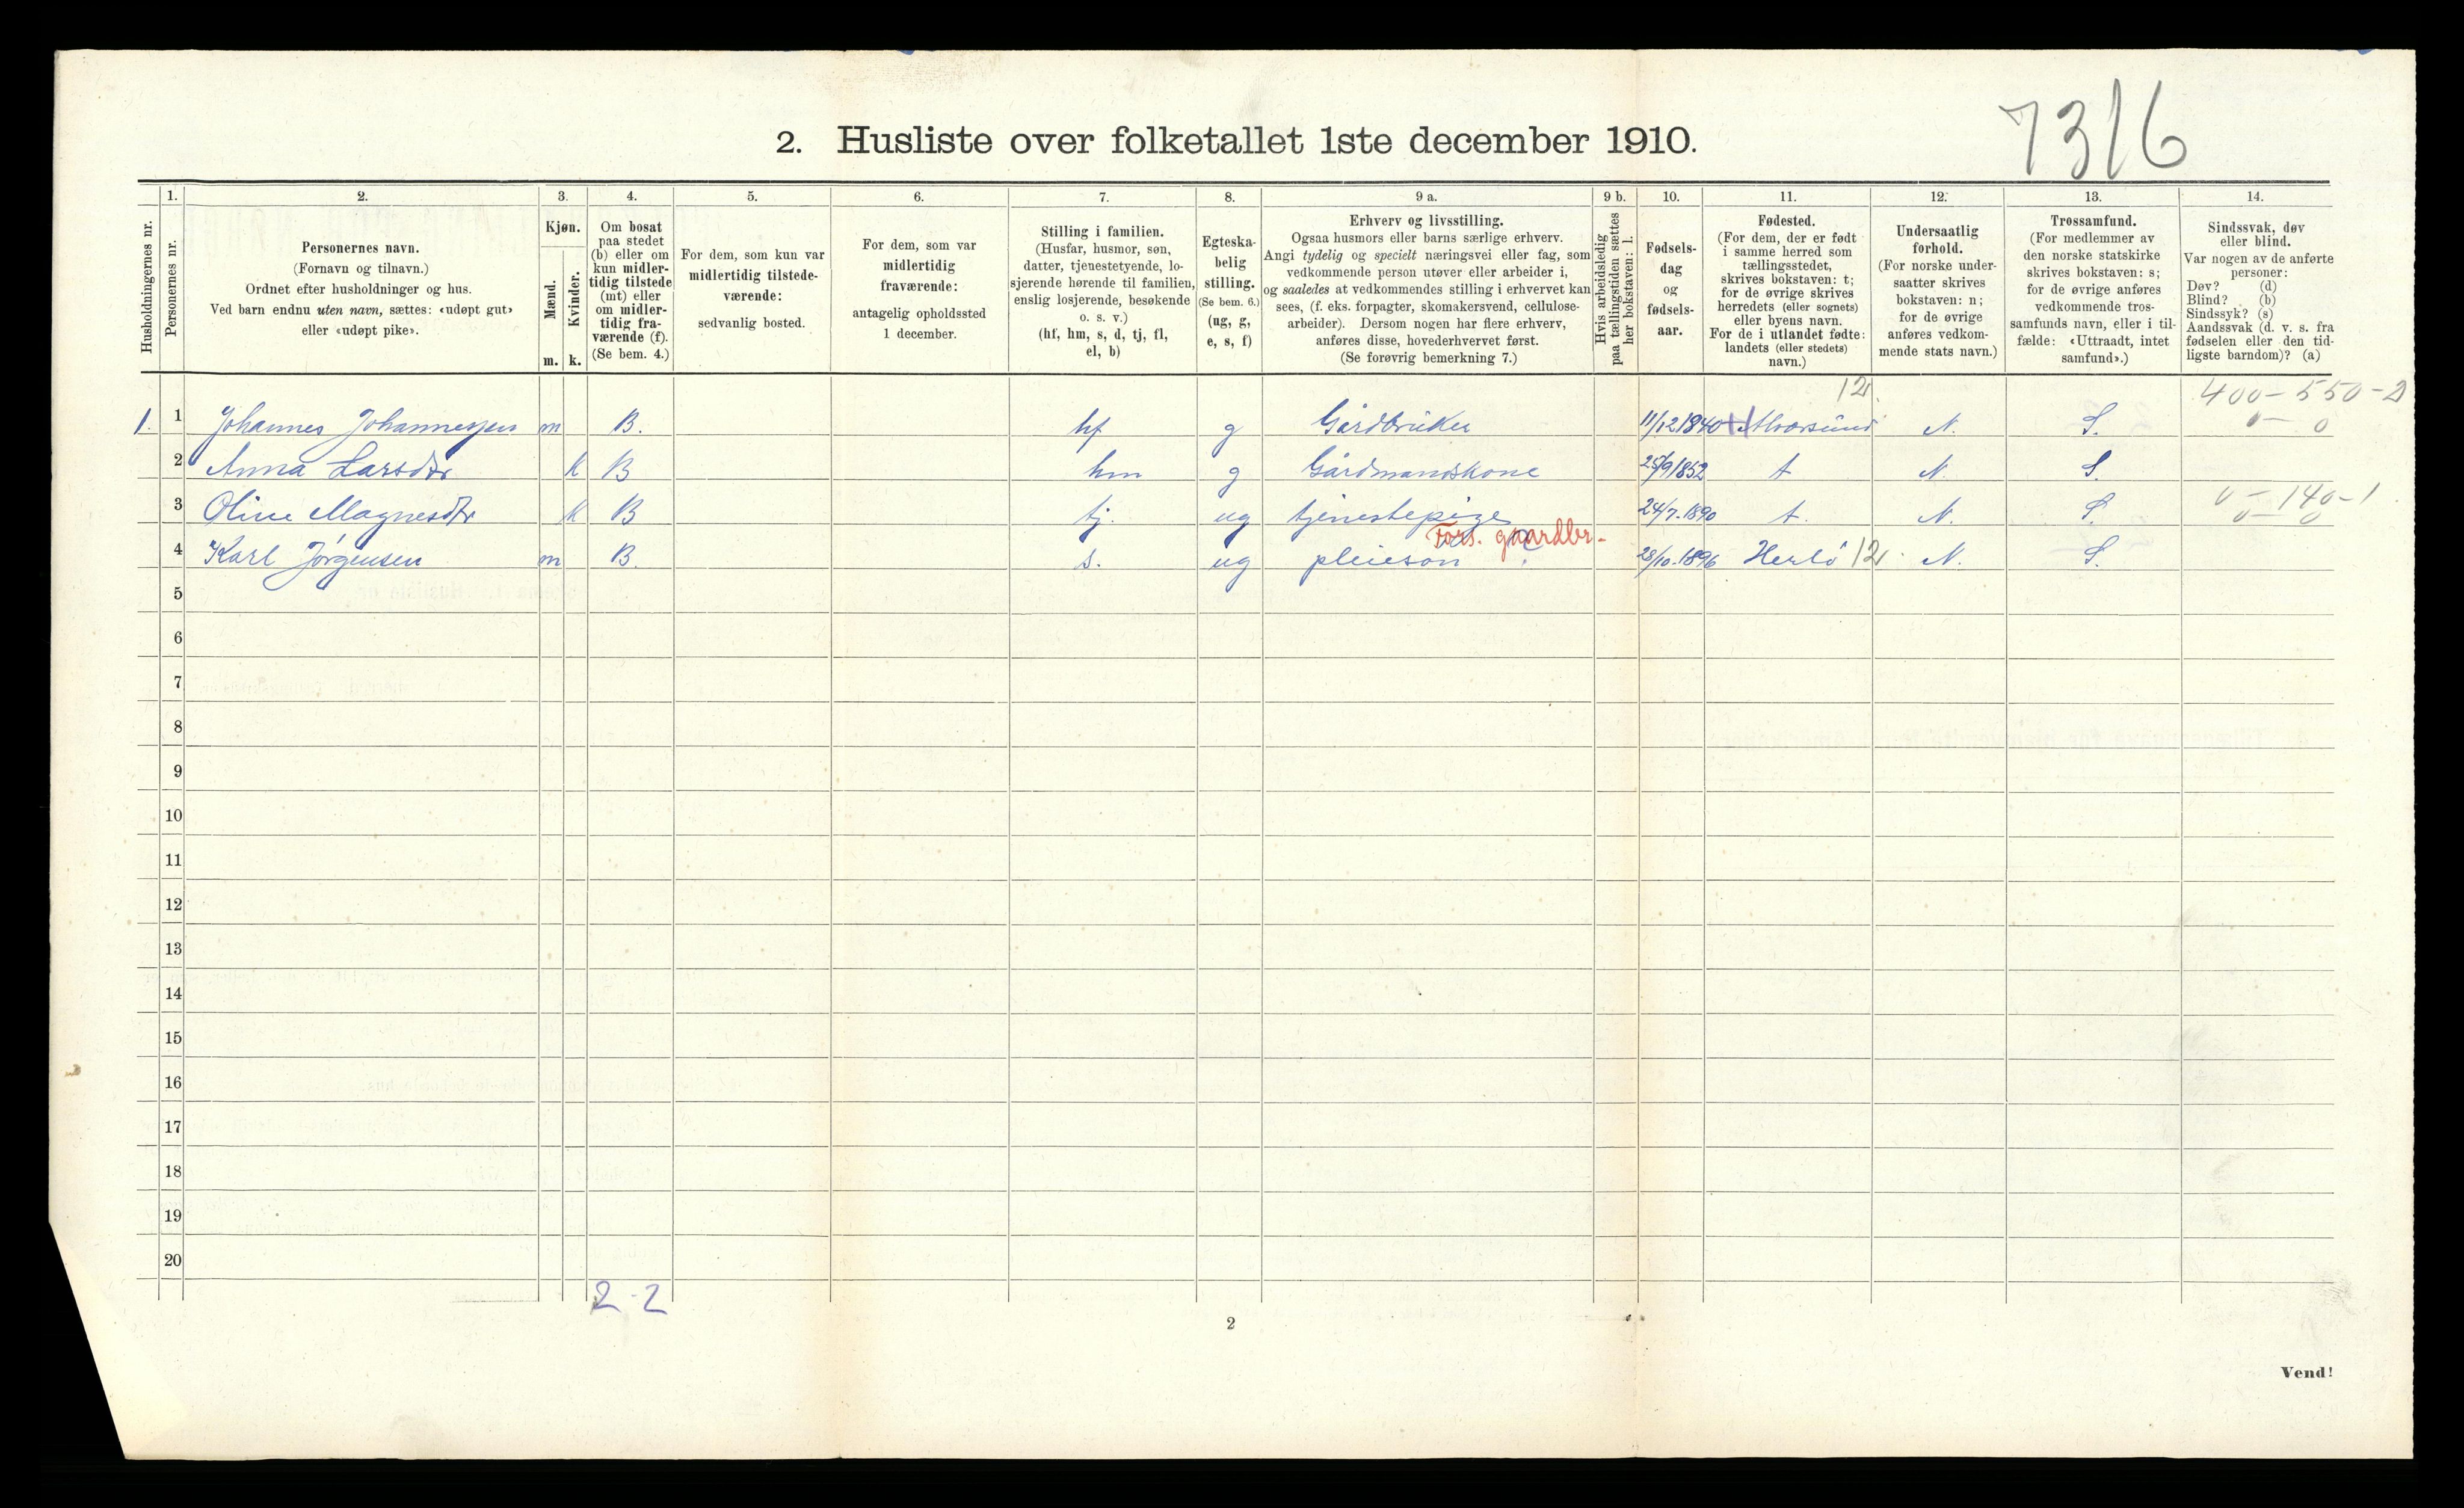 7316
2. Husliste over folketallet 1ste december 1910.
Husholdningernes nr.
1.
Personernes nr.
2.
Personernes navn.
(Fornavn og tilnavn.)
Ordnet efter husholdninger og hus.
Ved barn endnu uten navn, sættes: «udøpt gut»
eller «udøpt pike».
3.
Kjøn.
Mænd.
m.
Kvinder.
k.
4.
Om bosat
paa stedet
(b) eller om
kun midler-
tidig tilstede
(mt) eller
om midler-
tidig fra-
værende (f).
(Se bem. 4.)
5.
For dem, som kun var
midlertidig tilstede-
værende:
sedvanlig bosted.
6.
For dem, som var
midlertidig
fraværende:
antagelig opholdssted
1 december.
7.
Stilling i familien.
(Husfar, husmor, søn,
datter, tjenestetyende, lo-
sjerende hørende til familien,
enslig losjerende, besøkende
o. s. v.)
(hf, hm, s, d, tj, fl,
el, b)
8.
Egteska-
belig
stilling.
(Se bem. 6.)
(ug, g,
e, s, f)
9 a.
Erhverv og livsstilling.
Ogsaa husmors eller barns særlige erhverv.
Angi tydelig og specielt næringsvei eller fag, som
vedkommende person utøver eller arbeider i,
og saaledes at vedkommendes stilling i erhvervet kan
sees, (f. eks. forpagter, skomakersvend, cellulose-
arbeider). Dersom nogen har flere erhverv,
anføres disse, hovederhvervet først.
(Se forøvrig bemerkning 7.)
9 b.
Hvis arbeidsledig
paa tællingstiden sættes
her bokstaven: l.
10.
Fødsels-
dag
og
fødsels-
aar.
11.
Fødested.
(For dem, der er født
i samme herred som
tællingsstedet,
skrives bokstaven: t;
for de øvrige skrives
herredets (eller sognets)
eller byens navn.
For de i utlandet fødte:
landets (eller stedets)
navn.)
12.
Undersaatlig
forhold.
(For norske under-
saatter skrives
bokstaven: n;
for de øvrige
anføres vedkom-
mende stats navn.)
13.
Trossamfund.
(For medlemmer av
den norske statskirke
skrives bokstaven: s;
for de øvrige anføres
vedkommende tros-
samfunds navn, eller i til-
fælde: «Uttraadt, intet
samfund».)
14.
Sindssvak, døv
eller blind.
Var nogen av de anførte
personer:
Døv? (d)
Blind? (b)
Sindssyk? (s)
Aandssvak (d. v. s. fra
fødselen eller den tid-
ligste barndom)? (a)
12. 400-550-2
1. 1 Johannes Johannessen m B. hf g Gårdbruker 11/12 1840 Alversund N. S. 0-0
2 Anna Larsdtr k B hm g Gårdmandskone 25/9 1852 t N. S.
3 Oline Magnesdtr k B tj. ug tjenestepige 24/7.1890 t. N. S. 0-140-1
0-0
Fors. gaardbr.
4 Karl Jørgensen m B. s. ug pleiesøn 28/10.1896 Herlö 12 N. S.
5
6
7
8
9
10
11
12
13
14
15
16
17
18
19
20
2-2
2
Vend!